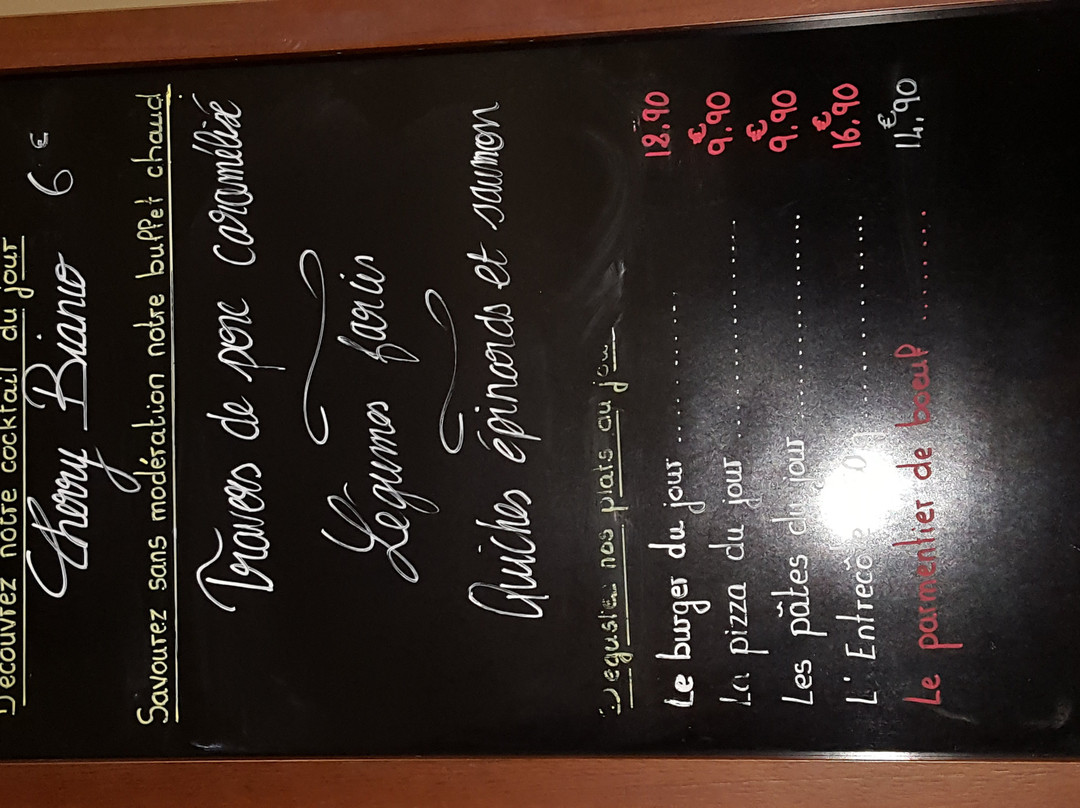 Découvrez notre cocktail du jour
Cherry Bianco 6 €
Savourez sans modération notre buffet chaud
Travers de porc caramélisé
Légumes farcis
Quiches épinards et saumon
Dégustez nos plats du jour
Le burger du jour .......... 12.90
La pizza du jour .......... 9.90 €
Les pâtes du jour .......... 9.90 €
L'Entrecôte .......... 16.90 €
Le parmentier de boeuf ....... 14.90 €